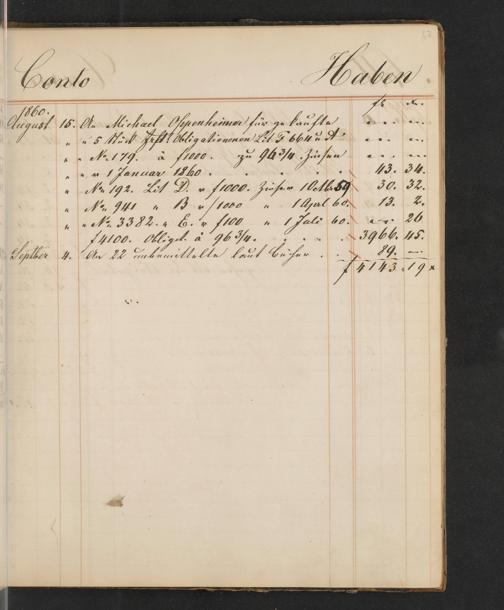 Conto Haben
fl. x.
1860.
August 15. An Michael Oppenheimer für gekaufte
" " 5 Stück Obligationen Lit F 664 u A
" " No. 179. à f1000. zu 96 3/4. Zinsen
" " v 1 Januar 1860 . . . . 43. 34.
" " No. 192. Lit D. v f1000. Zinsen 1 Octb 59 30. 32.
" " No. 941 " B v f1000 " 1 April 60. 13. 2.
" " No. 3382. " E. v f100 " 1 Juli 60. " 26
f4100. Obligat. à 96 3/4. . . . 3966. 45.
Septber 4. An 22 unbemittelte laut Bücher . . 89. "
f 4143. 19 x